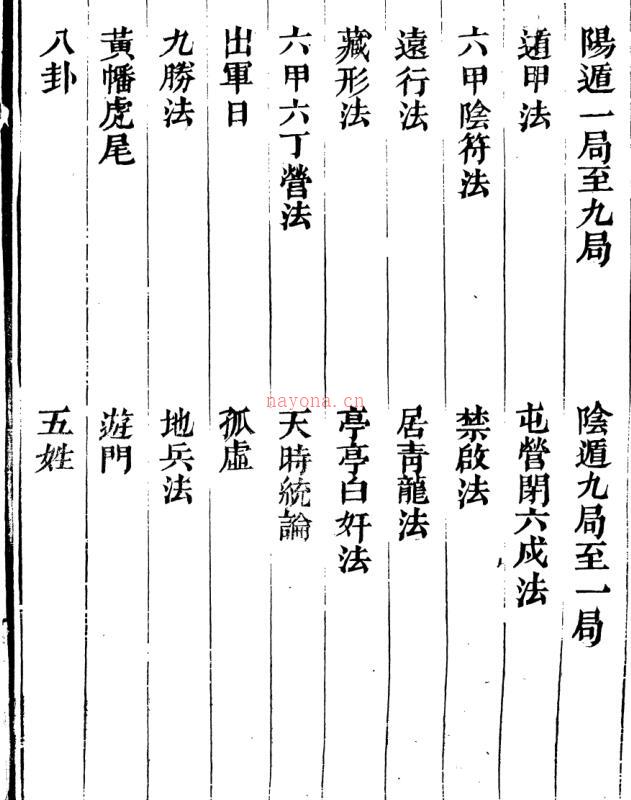 陽遁一局至九局　陰遁九局至一局
遁甲法　屯營閉六戌法
六甲陰符法　禁啟法
遠行法　居靑龍法
藏形法　亭亭白奸法
六甲六丁營法　天時統論
出軍日　孤虛
九勝法　地兵法
黃幡虎尾　遊門
八卦　五姓
nayona.cn